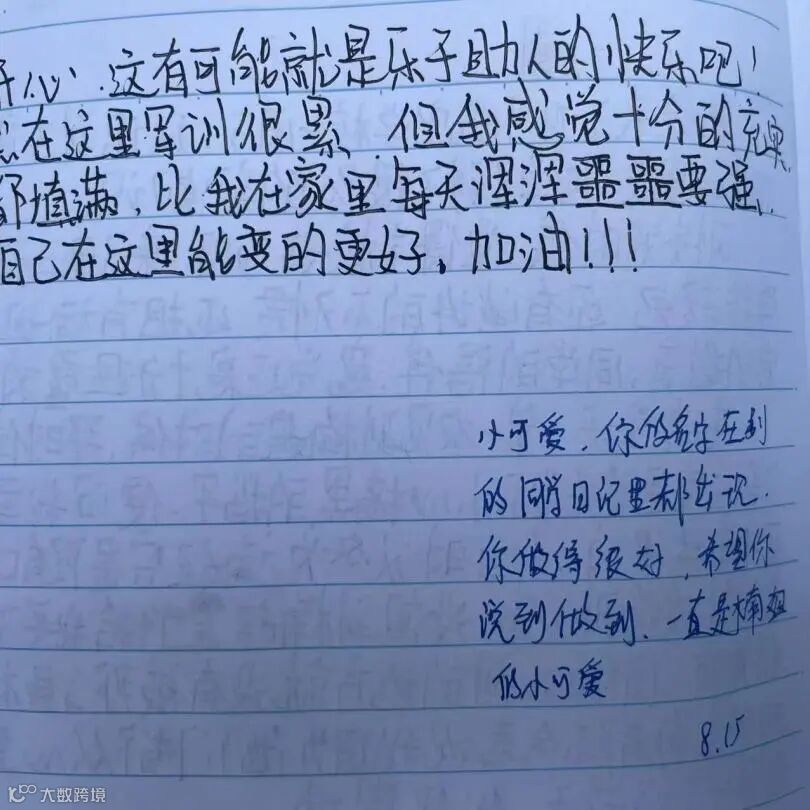 开心,这有可能就是乐于助人的快乐吧!
然在这里军训很累,但我感觉十分的充实
都填满,比我在家里每天浑浑噩噩要强,
自己在这里能变的更好,加油!!!
小可爱,你的名字在别
的同学日记里都出现.
你做得很好,希望你
说到做到,一直是楠姐
的小可爱
8.15
大数跨境